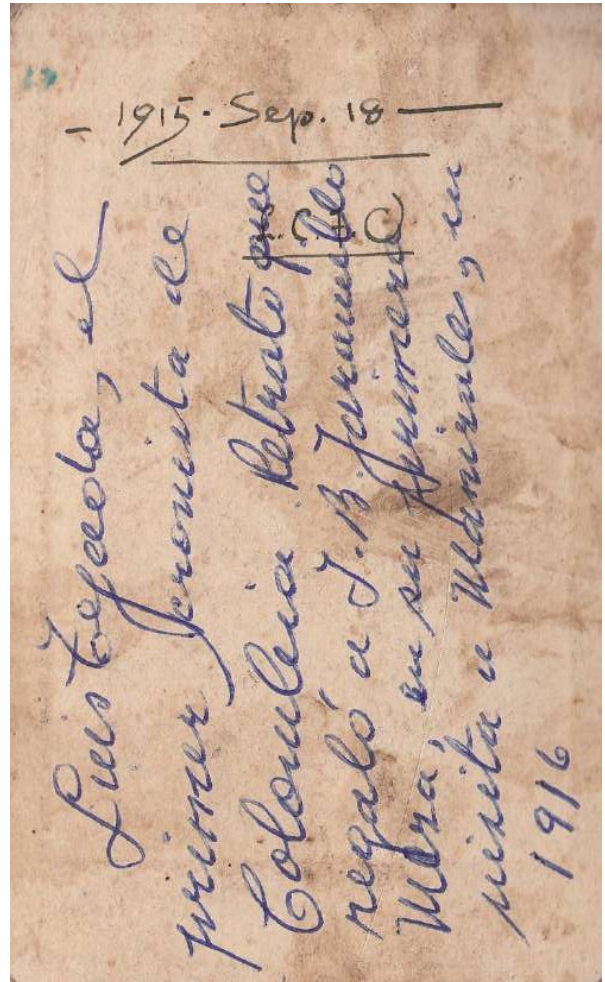 - 1915. Sep. 18 -
L.T.C
Luis Tejada, el
primer cronista de
Colombia. Retrato que
regaló a J. B. Jaramillo
Meza, en su primera
visita a Manizales, en
1916